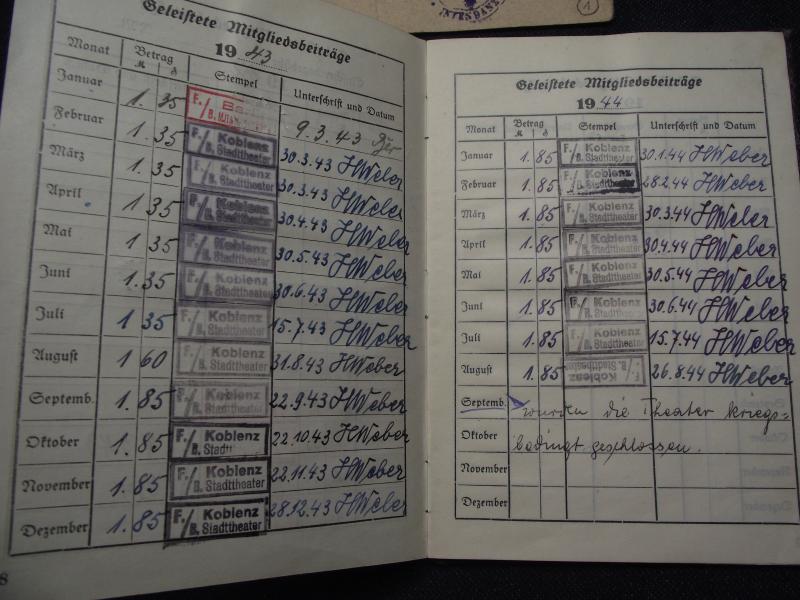 INTENDANZ
1
Geleistete Mitgliedsbeiträge
1943
Monat Betrag Stempel Unterschrift und Datum
M ₰
Januar 1.35 F./B. 9.3.43
Februar 1.35 F./B. Koblenz Stadttheater 30.3.43 HWeber
März 1.35 F./B. Koblenz Stadttheater 30.3.43 HWeber
April 1.35 F./B. Koblenz Stadttheater 30.4.43 HWeber
Mai 1.35 F./B. Koblenz Stadttheater 30.5.43 HWeber
Juni 1.35 F./B. Koblenz Stadttheater 30.6.43 HWeber
Juli 1 35 F./B. Koblenz Stadttheater 15.7.43 HWeber
August 1 60 F./B. Koblenz Stadttheater 31.8.43 HWeber
Septemb. 1.85 F./B. Koblenz Stadttheater 22.9.43 HWeber
Oktober 1.85 F./B. Koblenz Stadtt 22.10.43 HWeber
November 1.85 F./B. Koblenz Stadttheater 22.11.43 HWeber
Dezember 1.85 F./B. Koblenz Stadttheater 28.12.43 HWeber
8
Geleistete Mitgliedsbeiträge
1944
Monat Betrag Stempel Unterschrift und Datum
M ₰
Januar 1.85 F./B. Koblenz Stadttheater 30.1.44 HWeber
Februar 1.85 F./B. Koblenz Stadttheater 28.2.44 HWeber
März 1.85 F./B. Koblenz Stadttheater 30.3.44 HWeber
April 1.85 F./B. Koblenz Stadttheater 30.4.44 HWeber
Mai 1.85 F./B. Koblenz Stadttheater 30.5.44 HWeber
Juni 1.85 F./B. Koblenz Stadttheater 30.6.44 HWeber
Juli 1.85 F./B. Koblenz Stadttheater 15.7.44 HWeber
August 1.85 F./B. Koblenz Stadttheater 26.8.44 HWeber
Septemb. wurden die Theater kriegs-
Oktober bedingt geschlossen.
November
Dezember